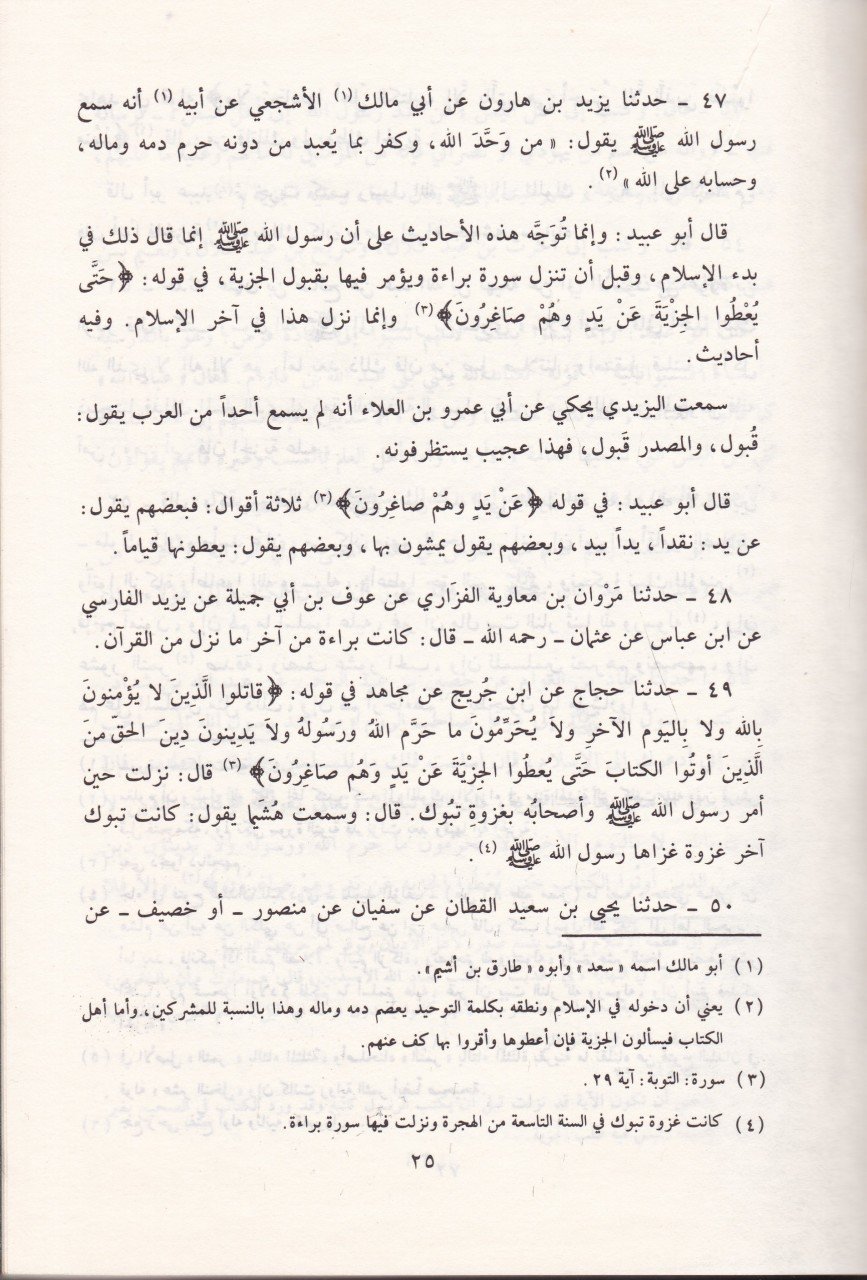 ٤٧ ـ حدثنا يزيد بن هارون عن أبي مالك (١) الأشجعي عن أبيه (١) أنه سمع
رسول الله ﷺ يقول: « من وَحَّدَ الله، وكفر بما يُعبد من دونه حرم دمه وماله،
وحسابه على الله » (٢) .
قال أبو عبيد: وإنما تُوَجَّه هذه الأحاديث على أن رسول الله ﷺ إنما قال ذلك في
بدء الإسلام، وقبل أن تنزل سورة براءة ويؤمر فيها بقبول الجزية، في قوله: ﴿حَتَّى
يُعْطُوا الجِزْيَةَ عَنْ يَدٍ وهُمْ صَاغِرُونَ﴾ (٣) وإنما نزل هذا في آخر الإسلام. وفيه
أحاديث.
سمعت اليزيدي يحكي عن أبي عمرو بن العلاء أنه لم يسمع أحداً من العرب يقول:
قُبول، والمصدر قَبول، فهذا عجيب يستظرفونه.
قال أبو عبيد: في قوله ﴿عَنْ يَدٍ وهُمْ صاغِرُونَ﴾ (٣) ثلاثة أقوال: فبعضهم يقول:
عن يد: نقداً، يداً بيد، وبعضهم يقول يمشون بها، وبعضهم يقول: يعطونها قياماً.
٤٨ ـ حدثنا مَرْوان بن معاوية الفزَاري عن عوف بن أبي جميلة عن يزيد الفارسي
عن ابن عباس عن عثمان ـ رحمه الله ـ قال: كانت براءة من آخر ما نزل من القرآن.
٤٩ ـ حدثنا حجاج عن ابن جُريج عن مجاهد في قوله: ﴿قاتلوا الَّذِينَ لا يُؤْمِنونَ
بِالله ولا بِاليَوم الآخرِ ولاَ يُحَرِّمُونَ ما حَرَّم اللهُ ورَسُولهُ ولاَ يَدِينونَ دِينَ الحقّ منَ
الَّذِينَ أوتُوا الكتابَ حَتَّى يُعطُوا الجِزْيَةَ عَنْ يَدٍ وَهُم صَاغِرُونَ﴾ (٣) قال: نزلت حين
أمر رسول الله ﷺ وأصحابُه بغزوةِ تبُوك. قال: وسمعت هُشيما يقول: كانت تبوك
آخر غزوة غزاها رسول الله ﷺ (٤) .
٥٠ ـ حدثنا يحيى بن سعيد القطان عن سفيان عن منصور ـ أو خصيف ـ عن
(١) أبو مالك اسمه « سعد » وأبوه « طارق بن أشيم ».
(٢) يعني أن دخوله في الاسلام ونطقه بكلمة التوحيد يعصم دمه وماله وهذا بالنسبة للمشركين، وأما أهل
الكتاب فيسألون الجزية فإن أعطوها وأقروا بها كف عنهم.
(٣) سورة: التوبة: آية ٢٩ .
(٤) كانت غزوة تبوك في السنة التاسعة من الهجرة ونزلت فيها سورة براءة.
٢٥